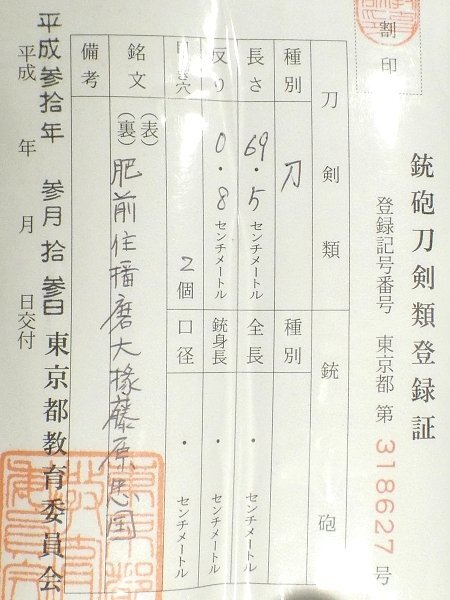 割印
銃砲刀剣類登録証
登録記号番号 東京都 第 318627 号
刀剣類 銃砲
種別 刀 種別
長さ 69・5センチメートル 全長 ・ センチメートル
反り 0・8センチメートル 銃身長 ・ センチメートル
目くぎ穴 2個 口径 ・ センチメートル
銘文 (表) 肥前住播磨大掾藤原忠国
(裏)
備考
平成参拾年 参月拾参日 東京都教育委員会
平成 年 月 日交付